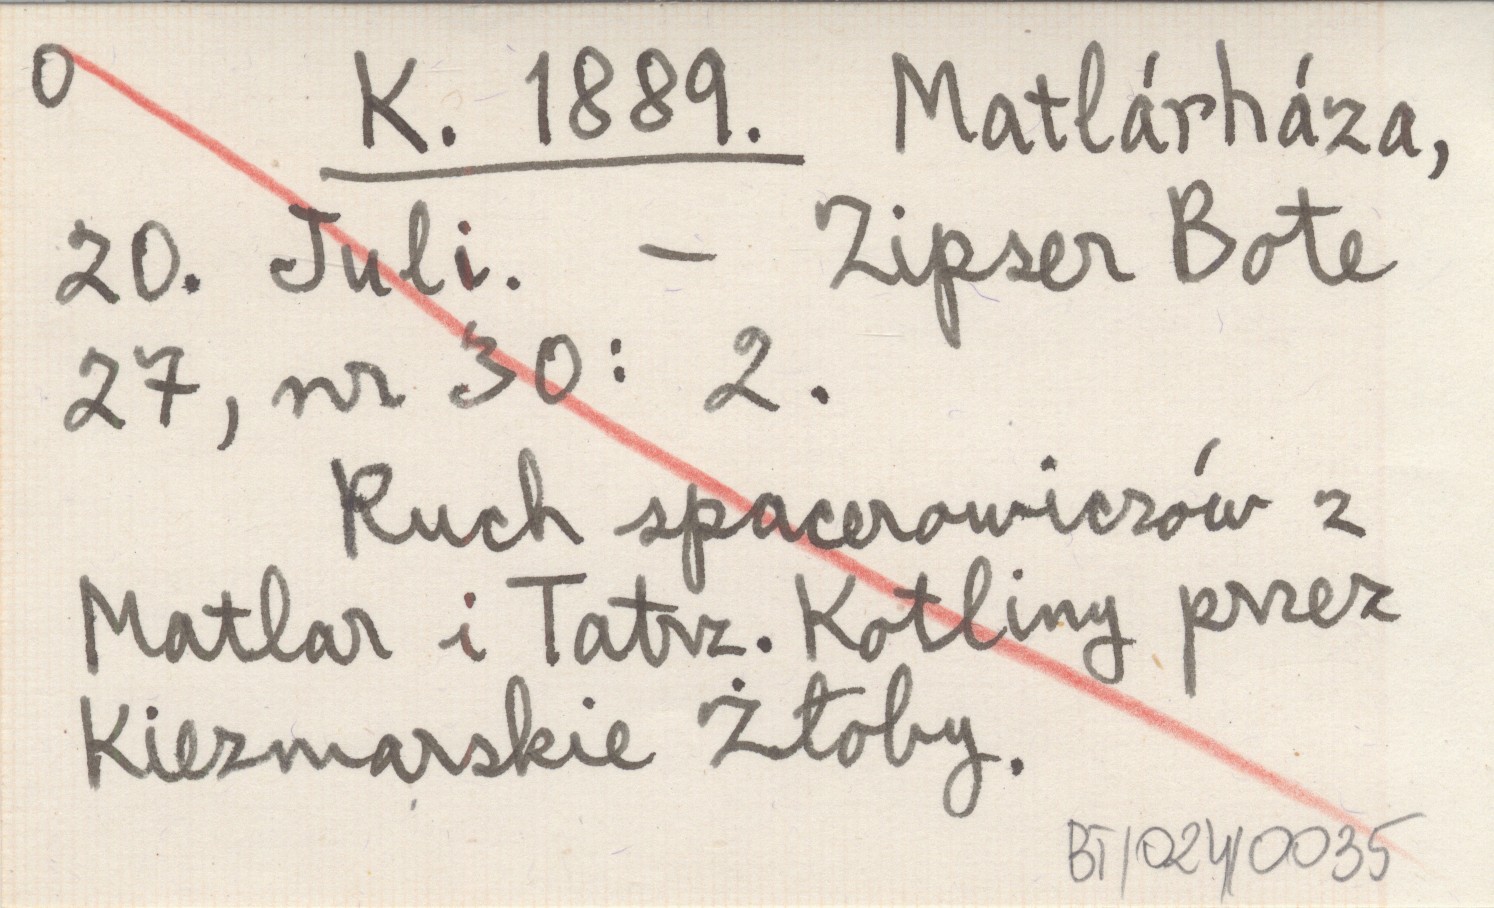 0 K. 1889. Matlárháza,
20. Juli. – Zipser Bote
27, nr 30: 2.
Ruch spacerowiczów z
Matlar i Tatrz. Kotliny przez
Kiezmarskie Żłoby.
BT/024/0035